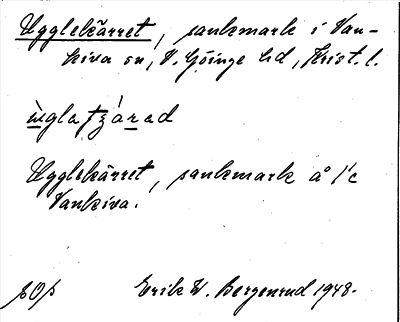 Ugglekärret, sankmark i Van-
kiva sn, V. Göinge hd, Krist. l.
Ugglekärret, sankmark å 1/2
Vankiva.
Erik W. Bergenrud 1948.